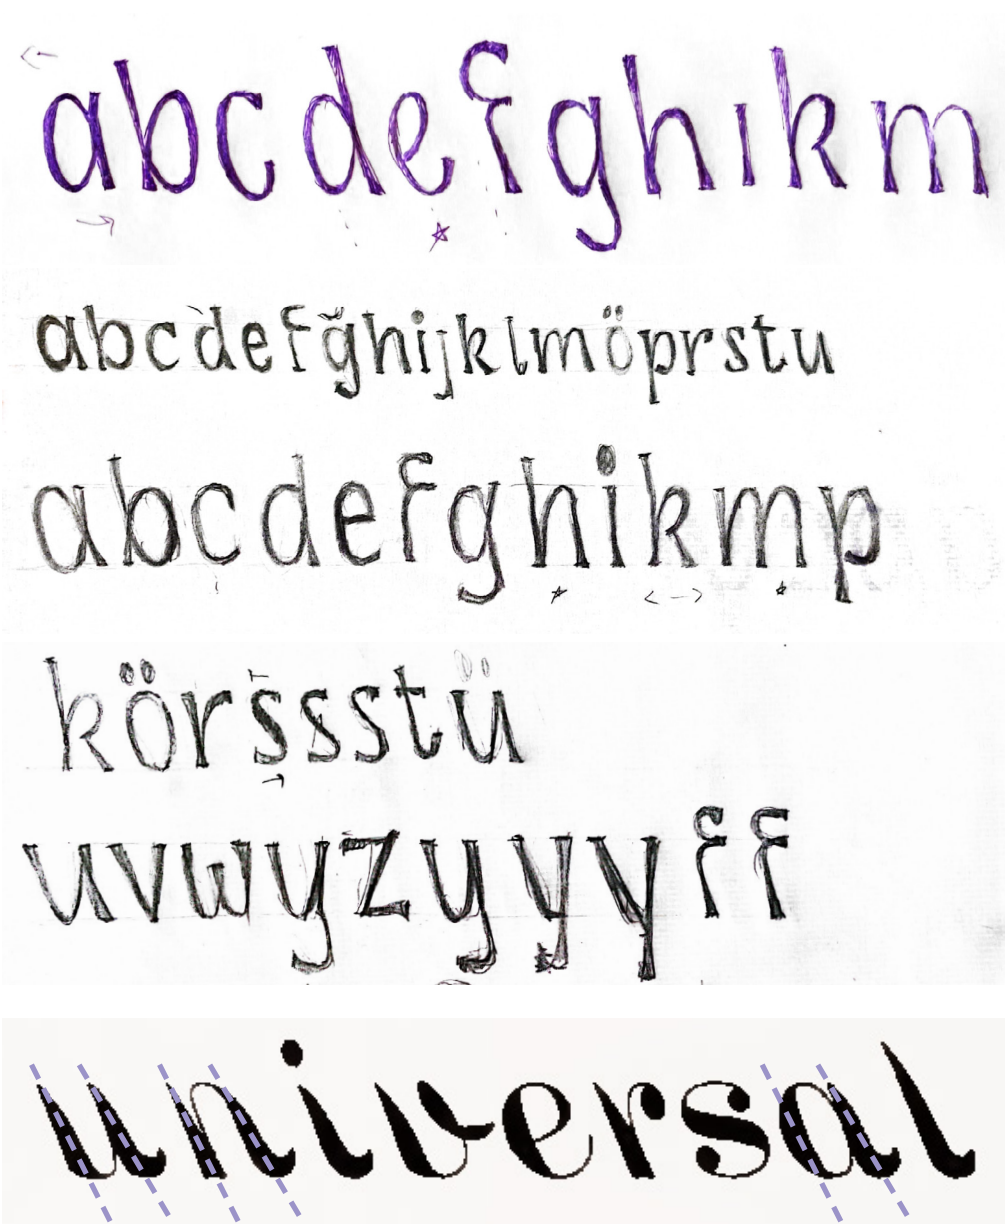 abcdefghıkm
abcdefğhijklmöprstu
abcdefghikmp
körssstü
uvwyzyyyff
universal